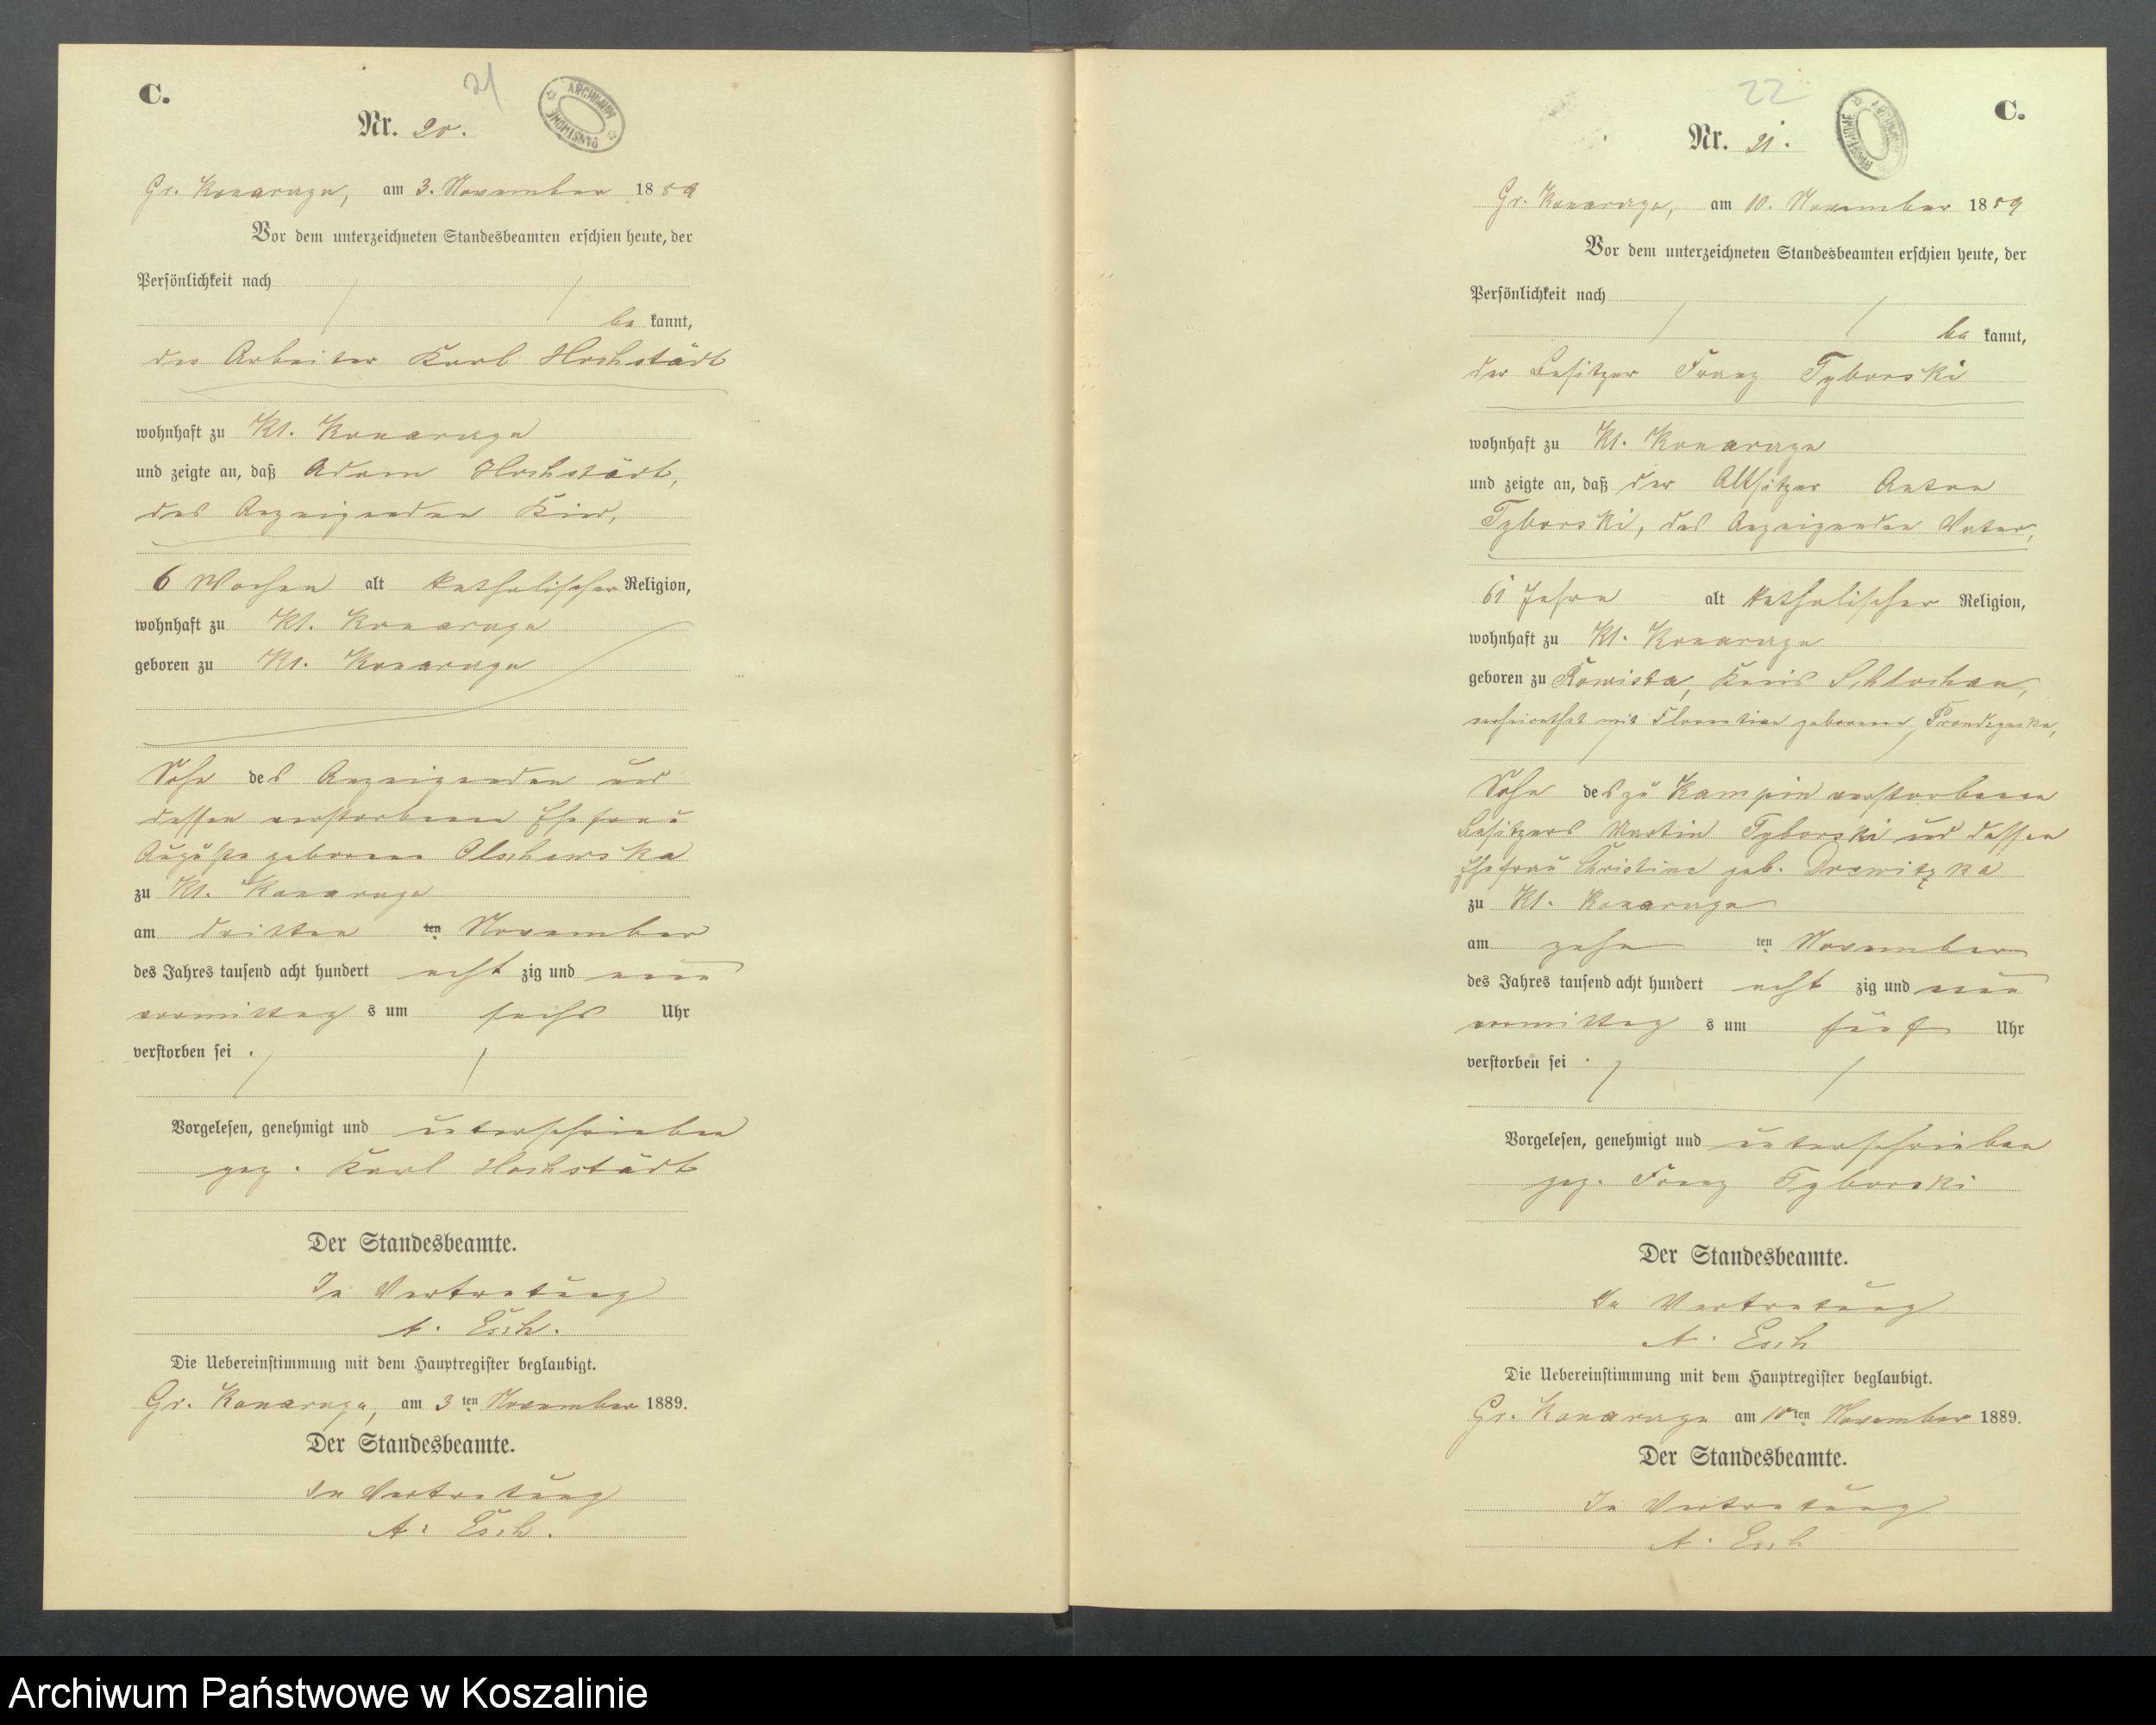 C.
21
ARCHIWUM PAŃSTWOWE
Nr. 20.
Gr. Konarzyn, am 3. November 1889
Vor dem unterzeichneten Standesbeamten erschien heute, der
Persönlichkeit nach
be kannt,
der Arbeiter Karl Hochstädt
wohnhaft zu Kl. Konarzyn
und zeigte an, daß Adam Hochstädt,
des Anzeigenden Kind,
6 Wochen alt katholischer Religion,
wohnhaft zu Kl. Konarzyn
geboren zu Kl. Konarzyn
Sohn des Anzeigenden und
dessen verstorbenen Ehefrau
Auguste geborene Olschewska
zu Kl. Konarzyn
am dritten ten November
des Jahres tausend acht hundert acht zig und neun
vormittag s um sechs Uhr
verstorben sei.
Vorgelesen, genehmigt und unterschrieben
gez. Karl Hochstädt
Der Standesbeamte.
In Vertretung
A. Esch.
Die Uebereinstimmung mit dem Hauptregister beglaubigt.
Gr. Konarzyn, am 3 ten November 1889.
Der Standesbeamte.
In Vertretung
A. Esch.
22
C.
ARCHIWUM PAŃSTWOWE
Nr. 21.
Gr. Konarzyn, am 10. November 1889
Vor dem unterzeichneten Standesbeamten erschien heute, der
Persönlichkeit nach
be kannt,
der Besitzer Franz Tyborski
wohnhaft zu Kl. Konarzyn
und zeigte an, daß der Altsitzer Anton
Tyborski, des Anzeigenden Vater,
61 Jahre alt katholischer Religion,
wohnhaft zu Kl. Konarzyn
geboren zu Kreis Schlochau,
verheirathet mit Florentine geborene
Sohn des zu Kampin verstorbenen
Besitzers Martin Tyborski und dessen
Ehefrau Christine geb. Drewitzka
zu Kl. Konarzyn
am zehn ten November
des Jahres tausend acht hundert acht zig und neun
vormittag s um fünf Uhr
verstorben sei.
Vorgelesen, genehmigt und unterschrieben
gez. Franz Tyborski
Der Standesbeamte.
In Vertretung
A. Esch
Die Uebereinstimmung mit dem Hauptregister beglaubigt.
Gr. Konarzyn am 10 ten November 1889.
Der Standesbeamte.
In Vertretung
A. Esch
Archiwum Państwowe w Koszalinie